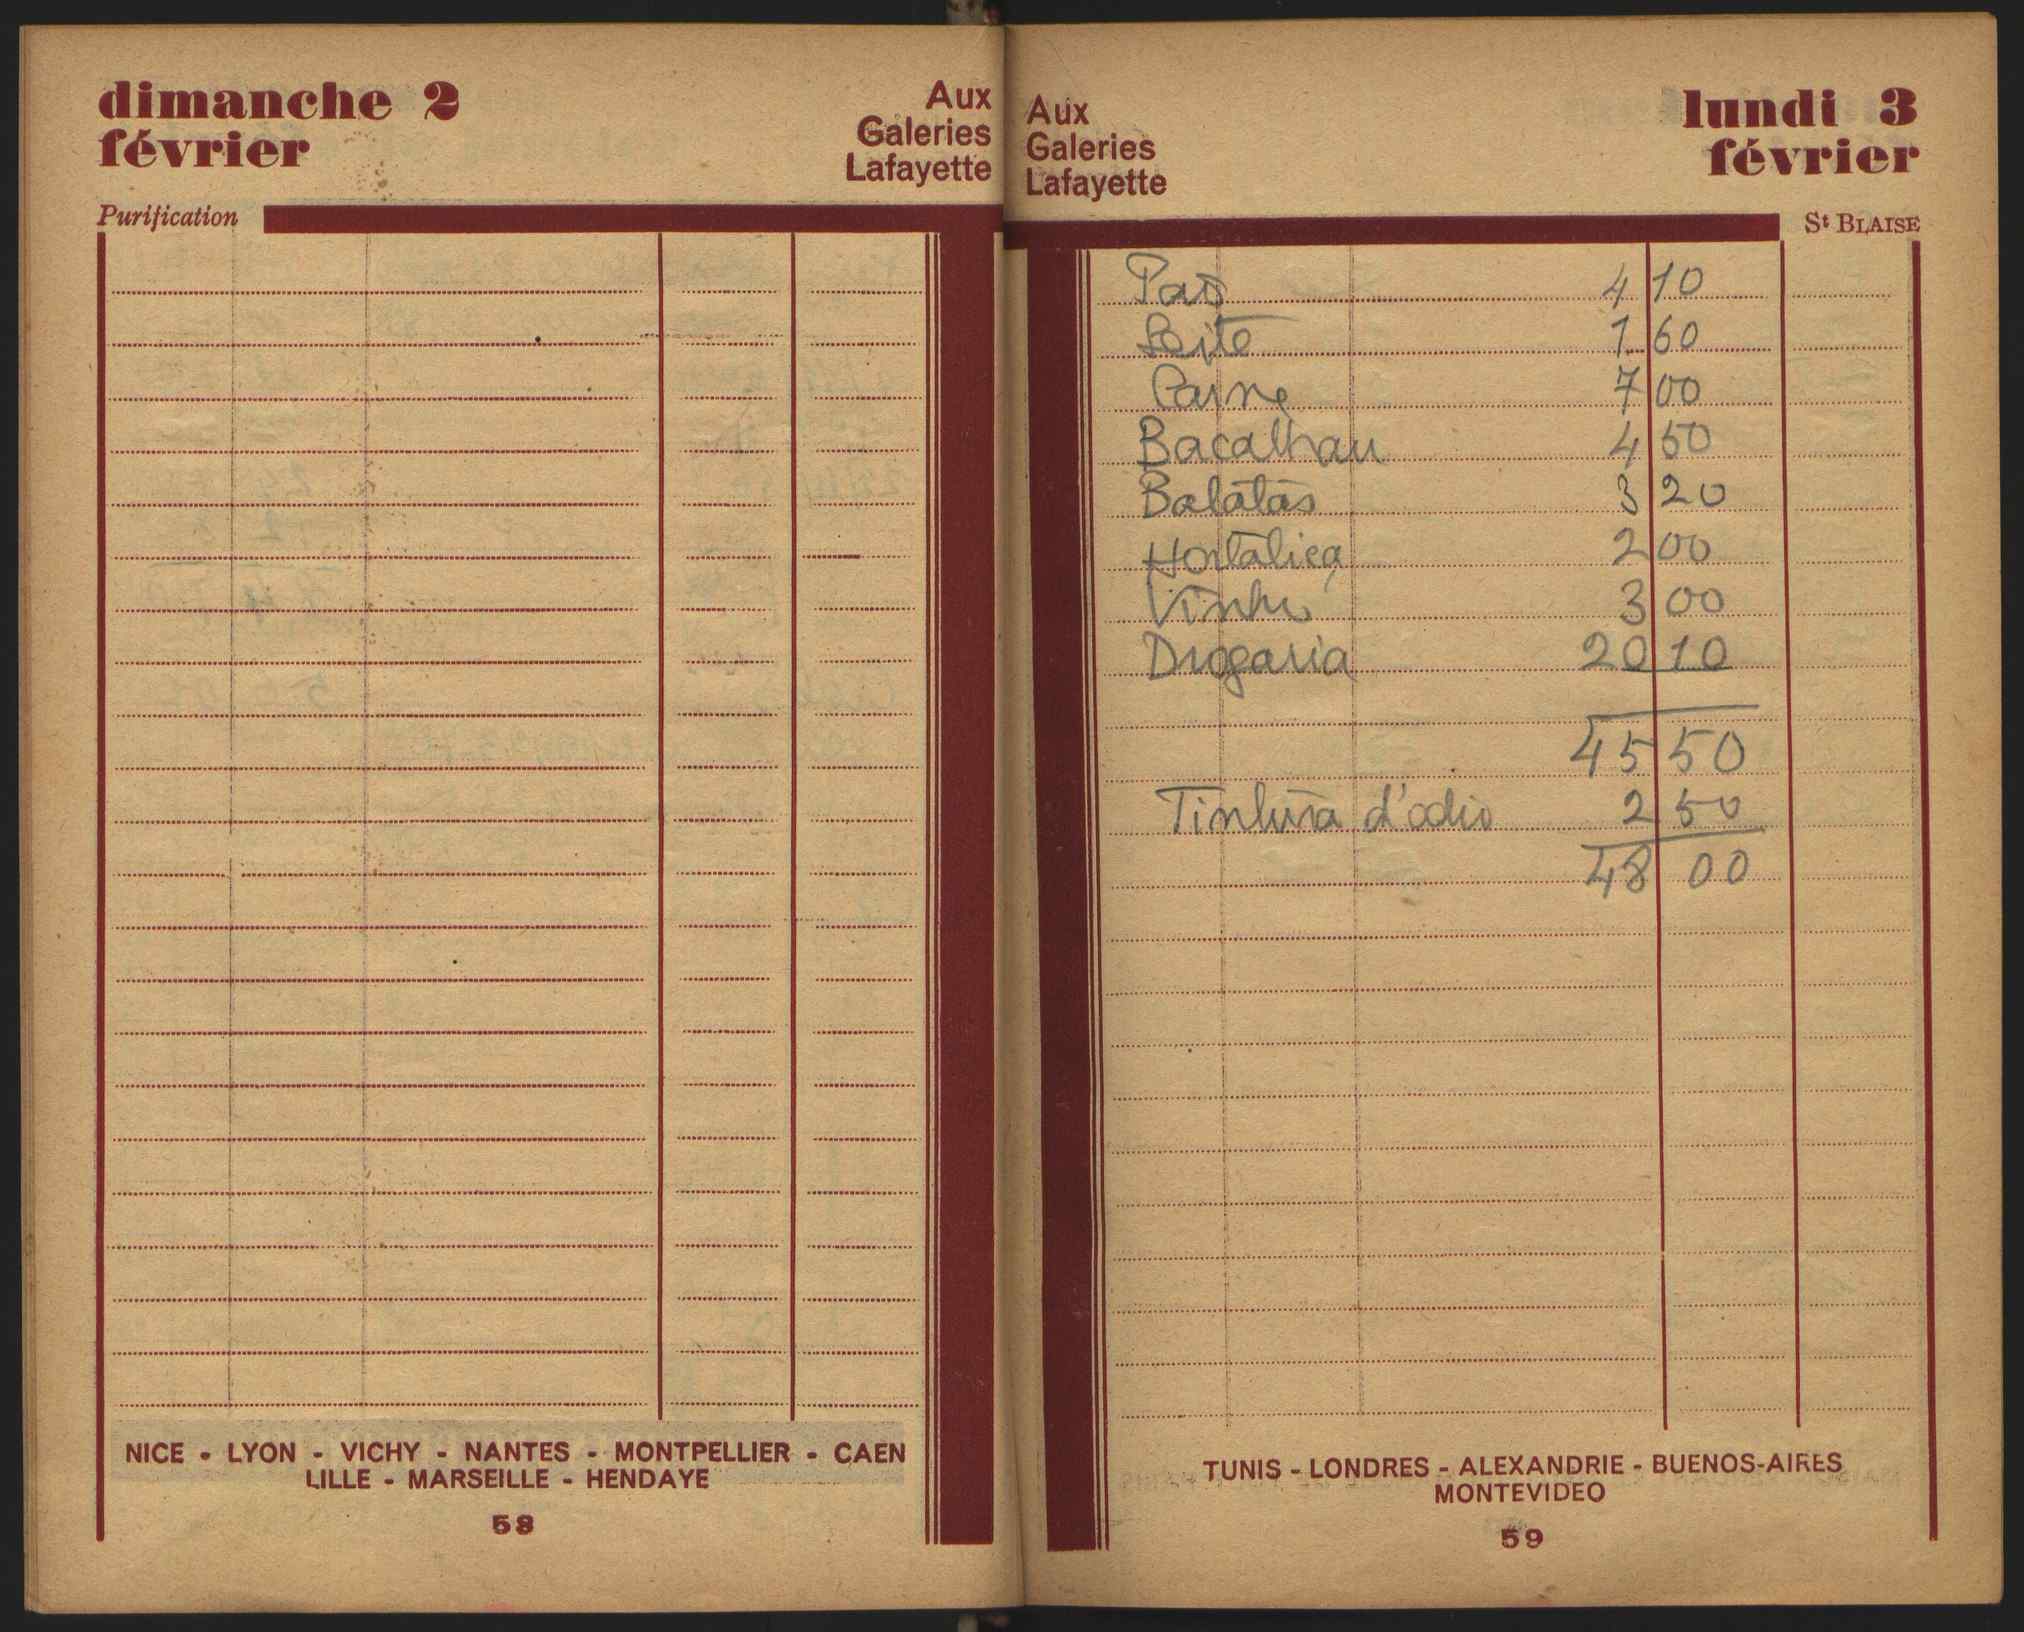 dimanche 2
février
Aux
Galeries
Lafayette
Purification
NICE - LYON - VICHY - NANTES - MONTPELLIER - CAEN
LILLE - MARSEILLE - HENDAYE
58
Aux
Galeries
Lafayette
lundi 3
février
St BLAISE
Pão 4 10
Leite 1 60
Carne 7 00
Bacalhau 4 50
Batatas 3 20
Hortaliça 2 00
Vinho 3 00
Drogaria 20 10
45 50
Tintura d'odio 2 50
48 00
TUNIS - LONDRES - ALEXANDRIE - BUENOS-AIRES
MONTEVIDEO
59